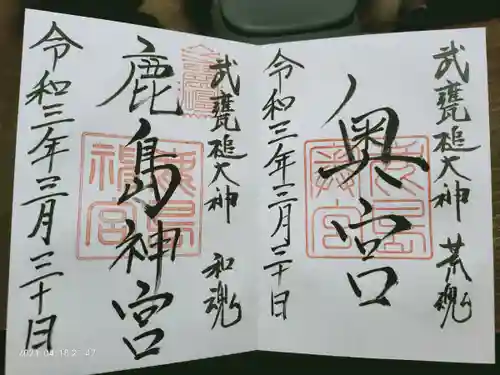 武甕槌大神 荒魂
奥宮
令和三年三月三十日
武甕槌大神 和魂
鹿島神宮
令和三年三月三十日